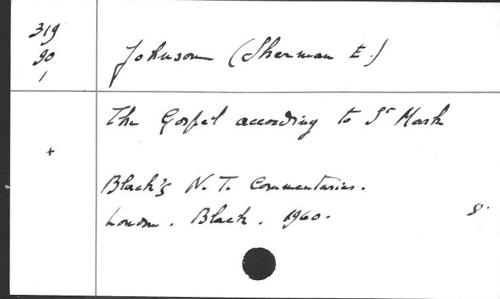 319
90
1
Johnson (Sherman E.)
The Gospel according to St Mark
+
Black's N. T. Commentaries.
London. Black. 1960.
8°